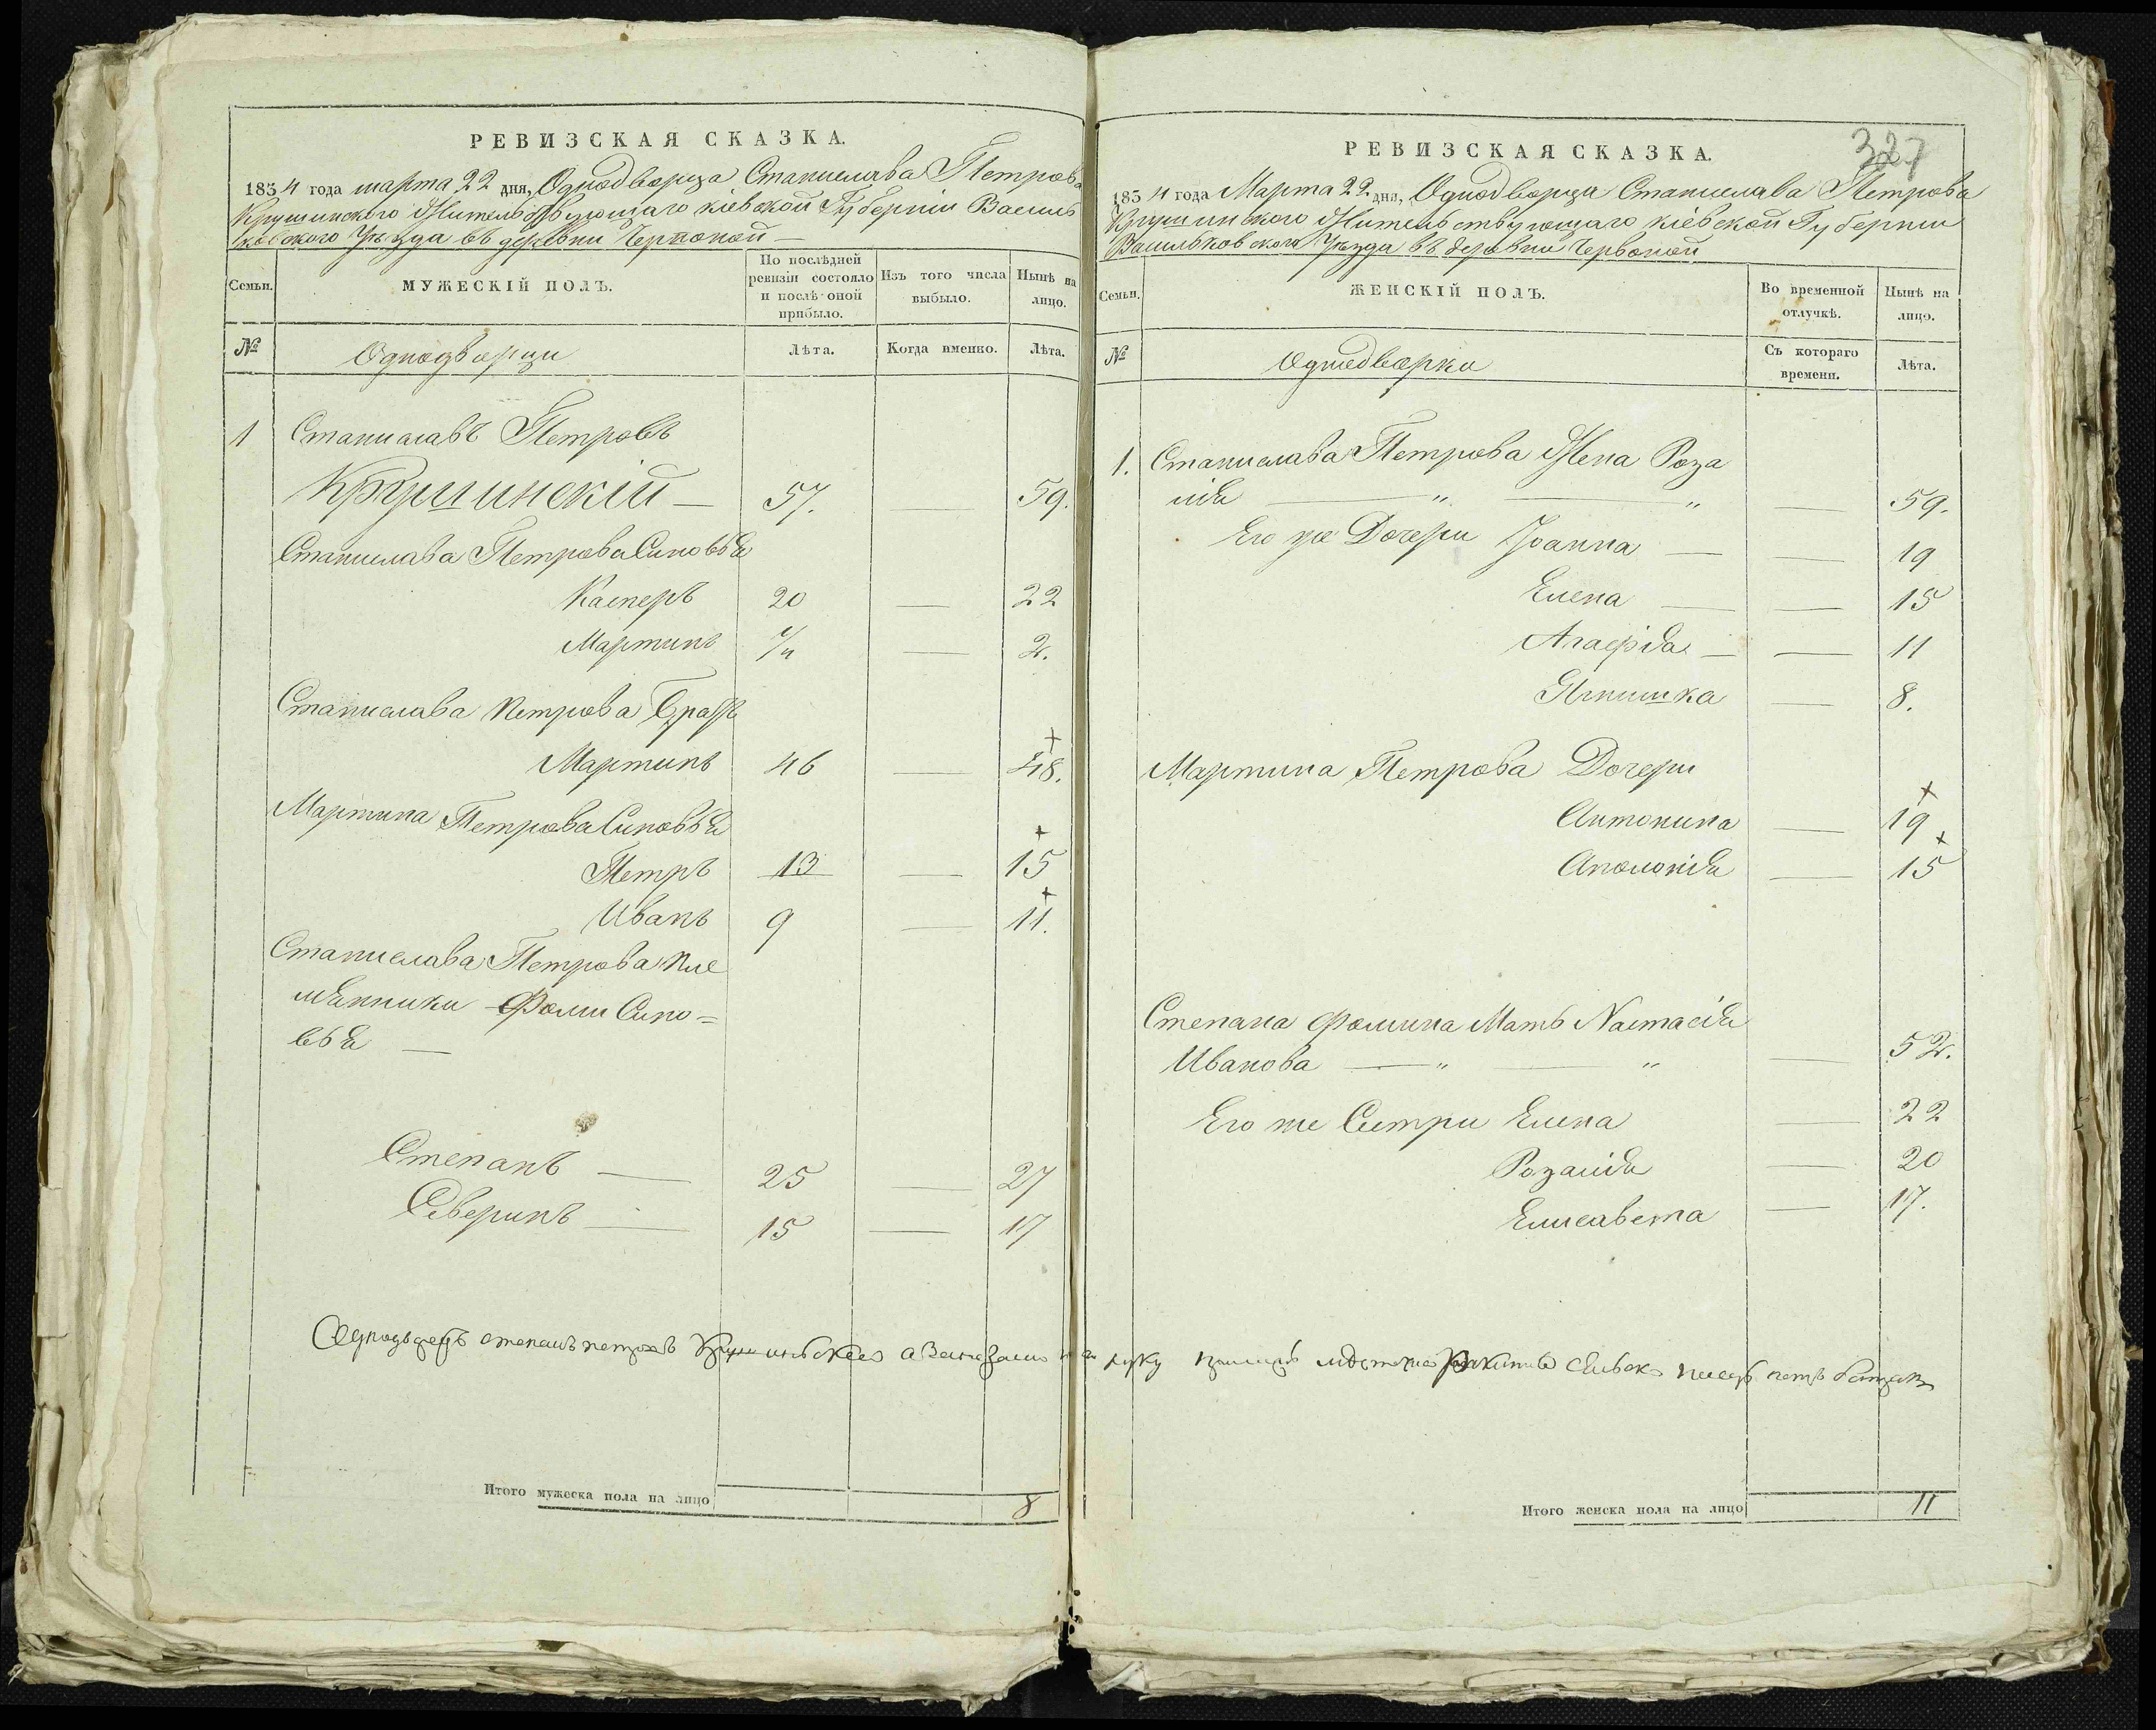 РЕВИЗСКАЯ СКАЗКА.
1854 года марта 22 дня, Однодворца Станислава Петрова
Крушинского Жительствующаго кіевской Губерніи Василь
ковского Уезда въ деревни Червоной —
Семьи.
МУЖЕСКІЙ ПОЛЪ.
По послѣдней ревизіи состояло и послѣ оной прибыло.
Изъ того числа выбыло.
Нынѣ на лицо.
№
Однодворци
Лѣта.
Когда именно.
Лѣта.
1 Станиславъ Петровъ
Крушинскій — 57. — 59.
Станислава Петрова Синовья
Касперъ 20 — 22
Мартинъ — 2.
Станислава Петрова Братъ
Мартинъ 46 — 48.
Мартина Петрова Синовья
Петръ 13 — 15
Иванъ 9 — 11.
Станислава Петрова пле
мянники Фоми Сино=
вья —
Степанъ — 25 — 27
Северинъ — 15 — 17
Итого мужеска пола на лицо 8
327
РЕВИЗСКАЯ СКАЗКА.
1854 года Марта 22 дня, Однодворца Станислава Петрова
Крушинского Жительствующаго кіевской Губернии
Васильковского Уезда въ деревни Червоной
Семьи.
ЖЕНСКІЙ ПОЛЪ.
Во временной отлучкѣ.
Нынѣ на лицо.
№
Однодворки
Съ котораго времени.
Лѣта.
1. Станислава Петрова Жена Роза
лія — " — " — 59.
Его же Дочери Іоанна — — 19
Елена — — 15
Агафія — — 11
Ягнишка — 8.
Мартина Петрова Дочери
Антонина — 19
Аполонія — 15
Степана Фомина Мать Настасія
Иванова — " — " — 52.
Его же Сестри Елена — 22
Розалія — 20
Елисавета — 17.
Итого женска пола на лицо 11